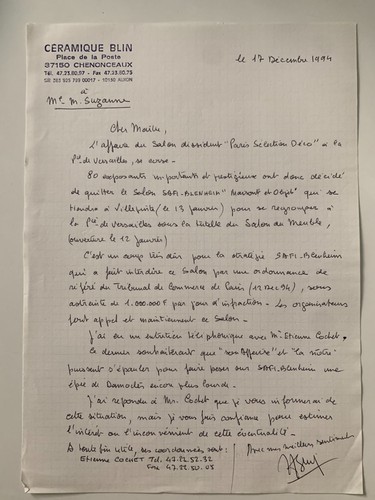 CÉRAMIQUE BLIN
Place de la Poste
37150 CHENONCEAUX
Tél. 47.23.80.97 - Fax 47.23.80.75
le 17 Décembre 1994
à
Me M. Suzanne
Cher Maître,
L'affaire du Salon dissident "Paris Sélection Déco" à la
Pte de Versailles, se corse -
80 exposants importants et prestigieux ont donc décidé
de quitter le Salon SAFI-BLENHEIM "Maison et Objet" qui se
tiendra à Villepinte (le 13 janvier) pour se regrouper à
la Pte de Versailles sous la tutelle du Salon du Meuble,
(ouverture le 12 janvier)
C'est un coup très dur pour la stratégie SAFI-Blenheim
qui a fait interdire ce Salon par une ordonnance de
référé du Tribunal de Commerce de Paris (12 Dec 94), sous
astreinte de 1.000.000 F par jour d'infraction - Les organisateurs
font appel et maintiennent ce Salon -
J'ai eu un entretien téléphonique avec Mr. Etienne Cochet.
Le dernier souhaiterait que "son affaire" et "la nôtre"
puissent s'épauler pour faire peser sur SAFI-Blenheim une
épée de Damoclès encore plus lourde -
J'ai répondu à Mr. Cochet que je vous informerai de
cette situation, mais je vous fais confiance pour estimer
l'intérêt ou l'inconvénient de cette éventualité -
A toute fin utile, ses coordonnées sont :
Etienne COCHET Tél.
Fax
Avec mes meilleurs sentiments